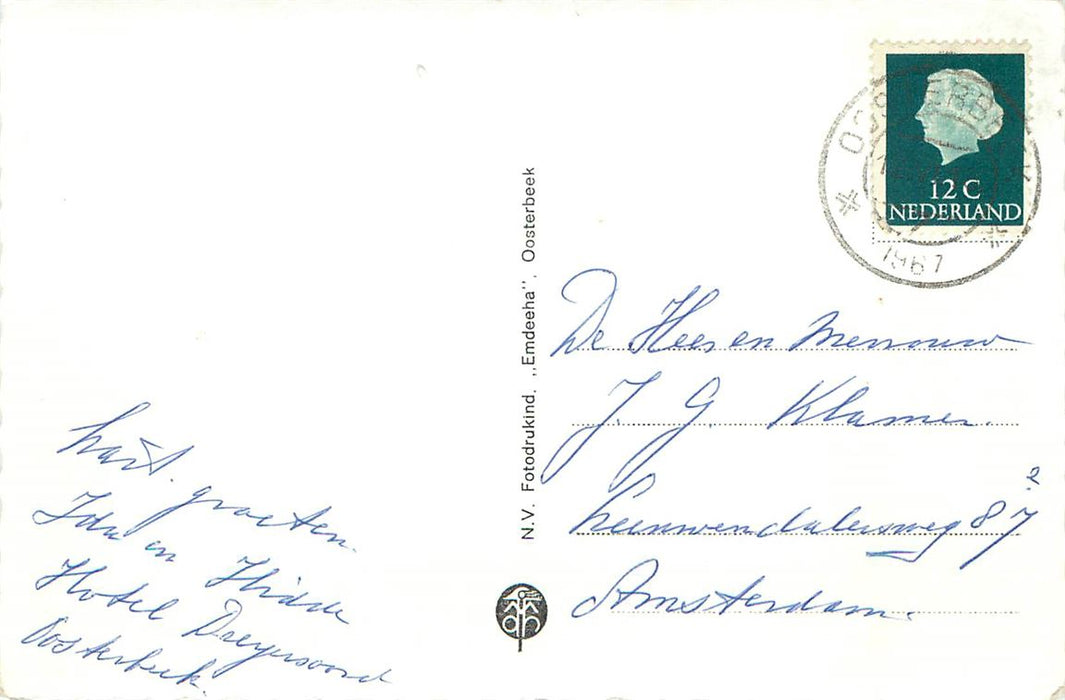 OOSTERBEEK
1967
12 C
NEDERLAND
N.V. Fotodrukind. „Emdeeha”, Oosterbeek
De Heer en Mevrouw
J. G. Klamer.
Leeuwendalersweg 87 2
Amsterdam.
hart. groeten.
Ida en Hidde
Hotel Dreyeroord
Oosterbeek.